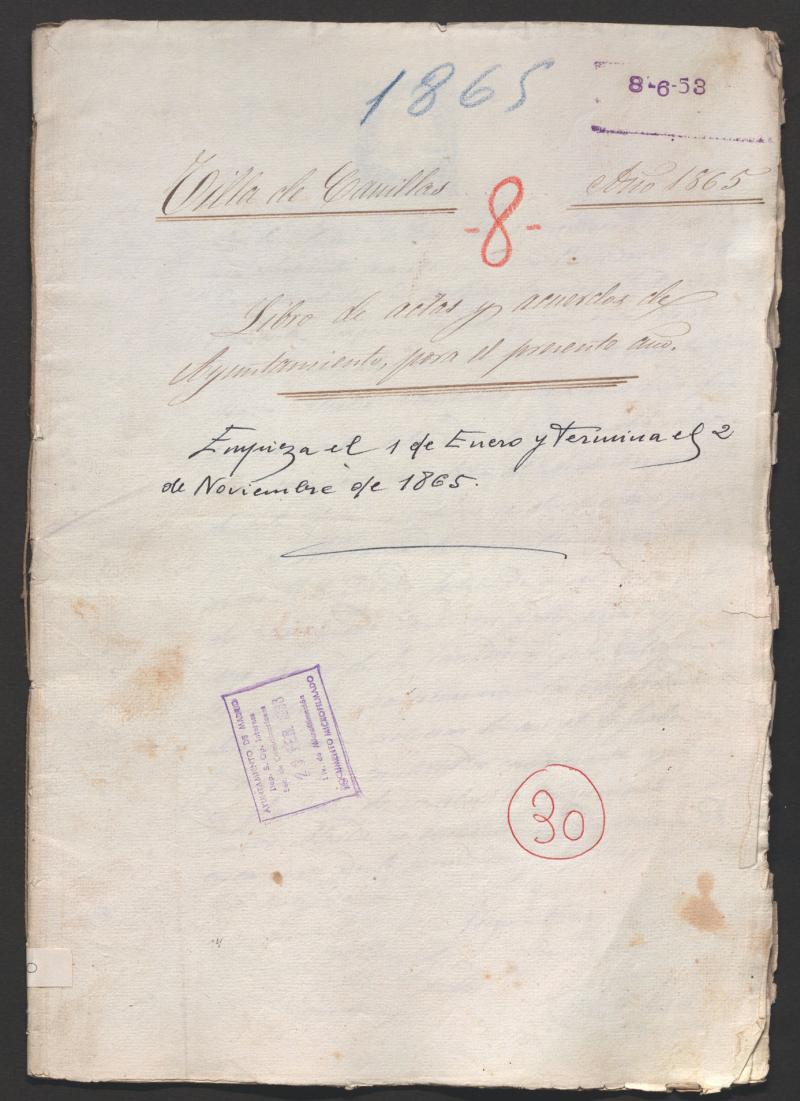 1865
8-6-53
Villa de Canillas
Año 1865
-8-
Libro de actas y acuerdos de
Ayuntamiento, para el presente año.
Empieza el 1 de Enero y termina el 2
de Noviembre de 1865.
AYUNTAMIENTO DE MADRID
Dep. S. Op. Internos
FEB. 1993
DOCUMENTO MICROFILMADO
30